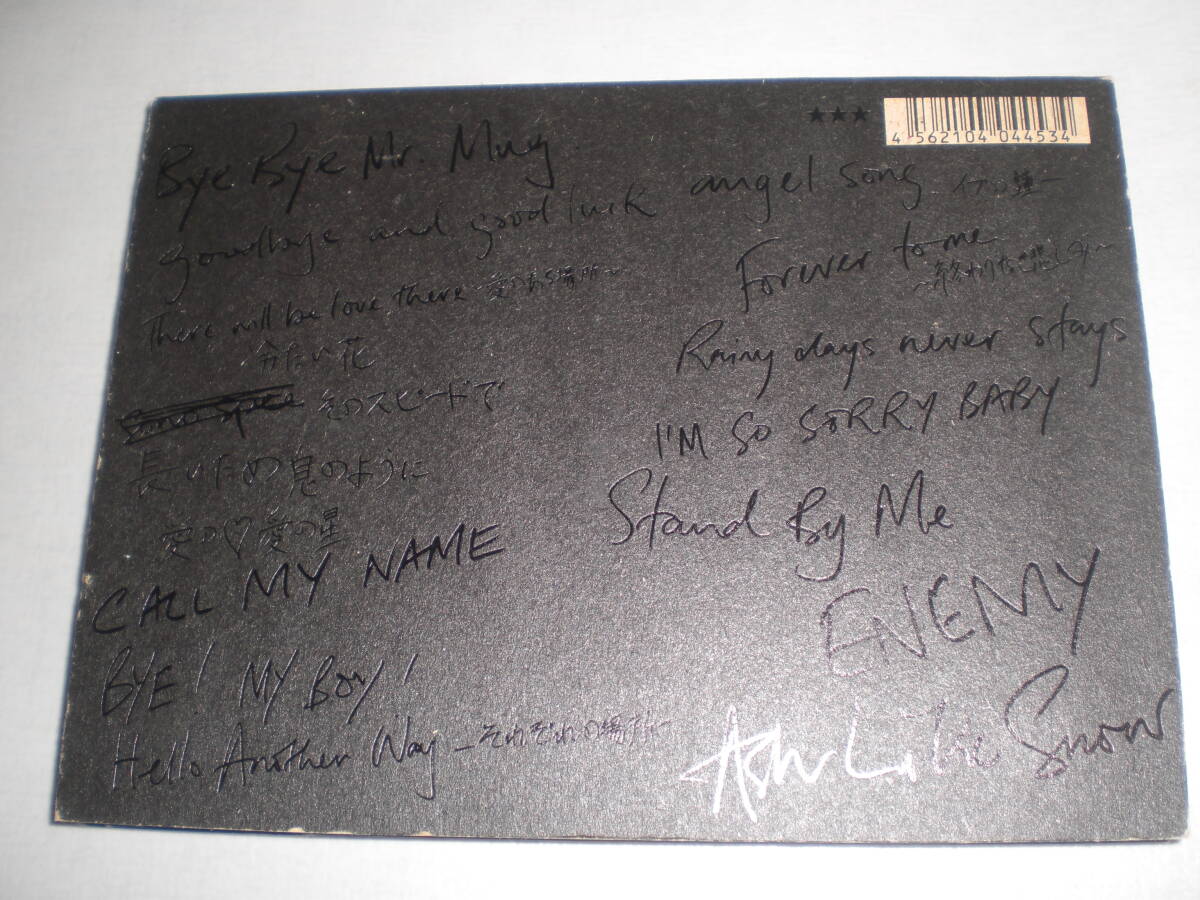 ★★★
4 562104 044534
Bye Bye Mr. Mug
goodbye and good luck
There will be love there ~愛のある場所~
冷たい花
そのスピードで
長いため息のように
愛の♡愛の星
CALL MY NAME
BYE! MY BOY!
Hello Another Way -それぞれの場所-
angel song -イヴの鐘-
Forever to me
~終わりなき悲しみ~
Rainy days never stays
I'M SO SORRY BABY
Stand By Me
ENEMY
Ash Like Snow